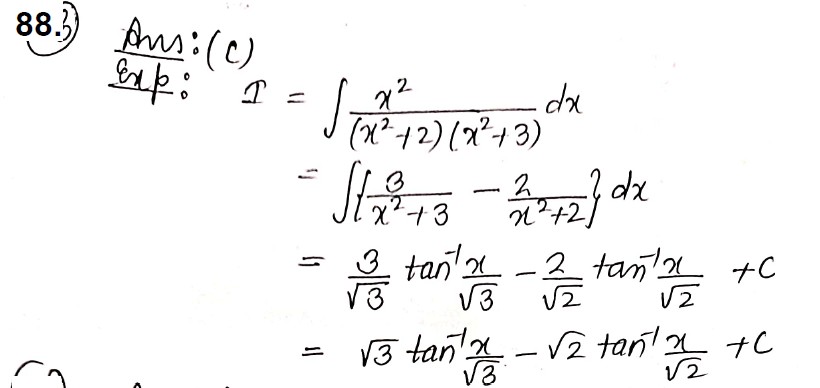 88.
Ans: (C)
Exp: I = ∫ x²/((x²+2)(x²+3)) dx
= ∫{3/(x²+3) − 2/(x²+2)} dx
= 3/√3 tan⁻¹ x/√3 − 2/√2 tan⁻¹ x/√2 + C
= √3 tan⁻¹ x/√3 − √2 tan⁻¹ x/√2 + C